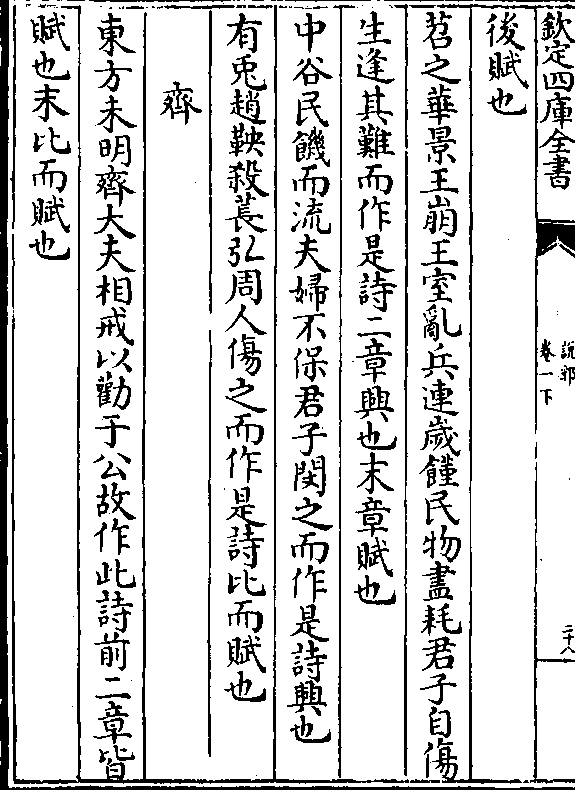 欽定四庫全書
説郛
卷一下
二十八
後賦也
苕之華景王崩王室亂兵連歲饉民物盡耗君子自傷
生逢其難而作是詩二章興也末章賦也
中谷民饑而流夫婦不保君子閔之而作是詩興也
有兎趙鞅殺萇弘周人傷之而作是詩比而賦也
齊
東方未明齊大夫相戒以勸于公故作此詩前二章皆
賦也末比而賦也